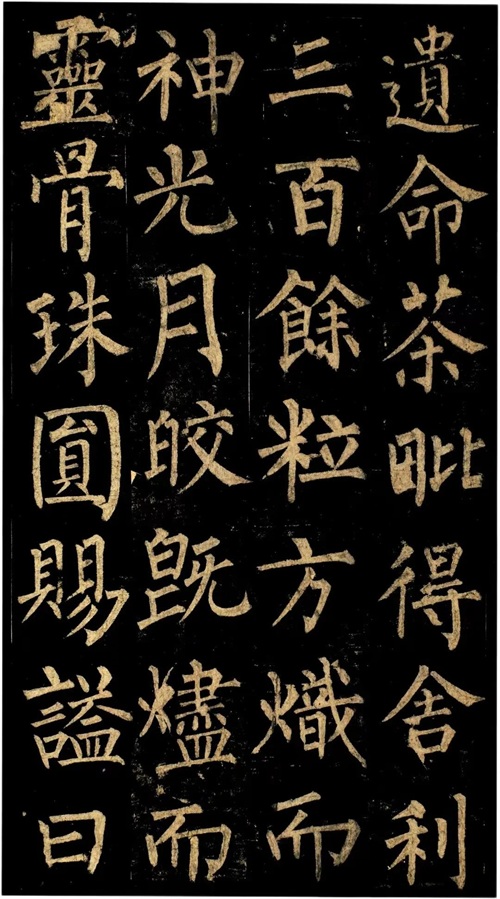 遺命茶毗得舍利
三百餘粒方熾而
神光月皎既燼而
靈骨珠圓賜謚曰